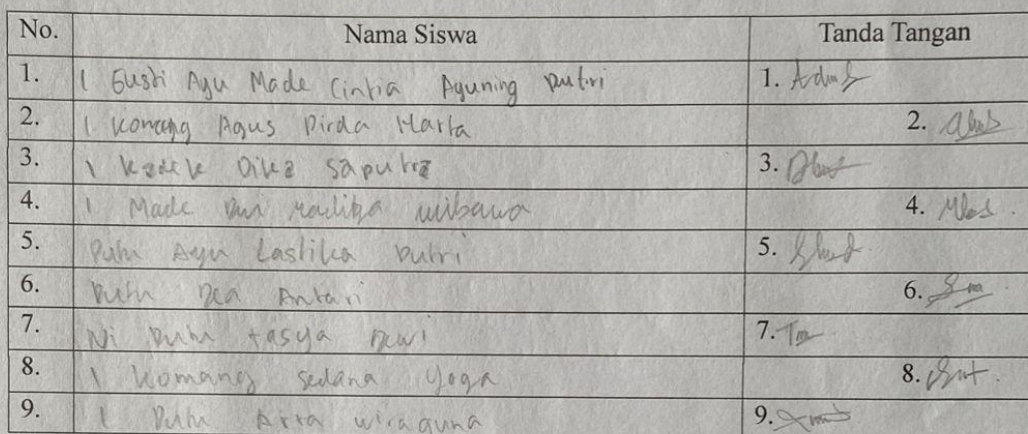 No. Nama Siswa Tanda Tangan
1. I Gusti Ayu Made Cintia Ayuning Putri 1.
2. I Komang Agus Dirda Marta 2.
3. I Kadek Dika Saputra 3.
4. I Made Dwi Wibawa 4.
5. Putu Ayu Lastika Putri 5.
6. Putu Dea Antari 6.
7. Ni Putu Tasya Dewi 7.
8. I Komang Sedana Yoga 8.
9. I Putu Arta Wiraguna 9.